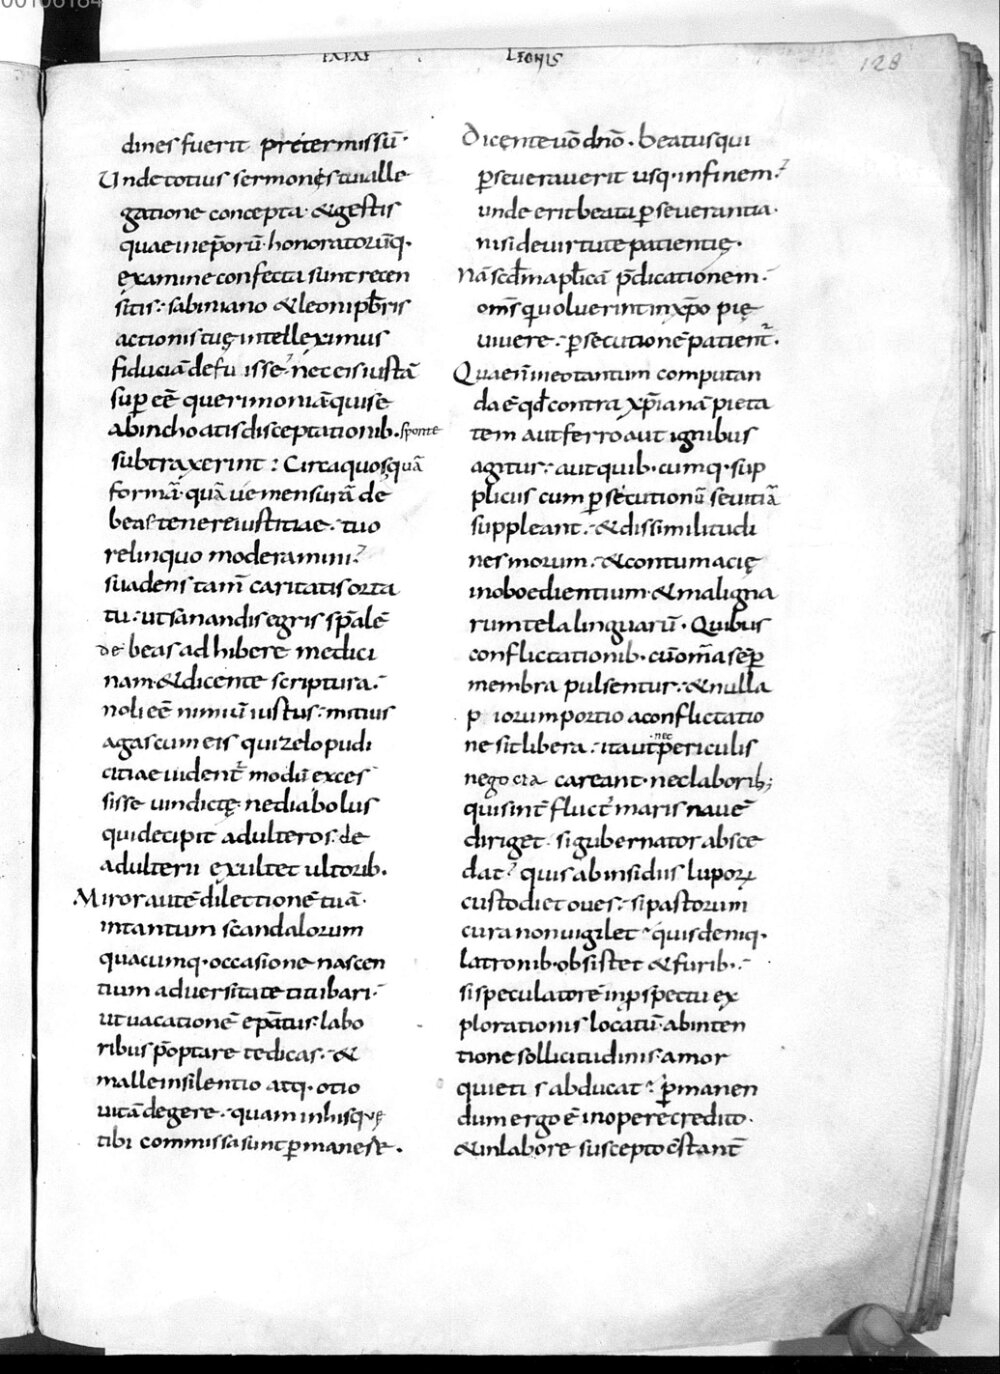 00106184
PAPAE
LEONIS
128
dines fuerit pretermissū·
Unde totius sermonęs tui alle
gatione concepta· & gestis
quae in ep̄orū· honoratorūq·
examine confecta sunt recen
sitis: sabiniano & leoni pb̄ris
actionis tuę intelleximus
fiduciā defuisse· nec eis iustā
sup eē̄ querimoniā qui se
ab inchoatis disceptationib· sponte
subtraxerint: Circa quos quā
formā· quā ue mensurā de
beas tenere iustitiae· tuo
relinquo moderamini·
suadens tam̄ caritatis orta
tu· ut sanandis egris sp̄alē
de beas adhibere medici
nam· & dicente scriptura·
noli eē̄ nimiū iustus· mitius
agas cum eis qui zelo pudi
citiae uident̄ modū exces
sisse uindictę· ne diabolus
qui decipit adulteros· de
adulterii exultet ultorib·
Miror autē dilectionē tuā·
in tantum scandalorum
quacumq· occasione nascen
tium aduersitate titibari·
ut uacationē ep̄atus labo
ribus p̄optare te dicas· &
malle in silentio atq· otio
uitā degere· quam in his quę
tibi commissa sunt p̱manese·
Dicente uō dnō· beatus qui
p̱seuerauerit usq· in finem·
unde erit beata p̱seuerantia·
nisi de uirtute patientię·
Nā scd̄m aplicā p̄dicationem·
om̄s qui uoluerint in xp̄o pię
uiuere· p̱secutionē patient̄·
Quae n̄ in eo tantum computan
da ē qd̄ contra xp̄ianā pieta
tem aut ferro aut ignibus
agitur· aut quib·cumq· sup
pliciis cum p̱secutionū seuitiā
suppleant· & dissimilitudi
nes morum· & contumacię
inoboedientium· & maligna
rum tela linguarū· Quibus
conflictationib· cū om̄a sēp̱
membra pulsentur· & nulla
p iorum portio a conflictatio
ne sit libera· ita ut nec periculis
negocia careant· nec laborib;
quis int̄ fluct̄ maris nauē
diriget· si gubernator absce
dat? quis ab insidiis lupoꝝ
custodiet oues· si pastorum
cura non uigilet· quis deniq·
latronib· obsistet & furib·
si speculatorē in p̱spectu ex
plorationis locatū· ab inten
tione sollicitudinis· amor
quieti s abducat· p̱manen
dum ergo ē in opere credito·
& in labore suscepto c̄stant̄